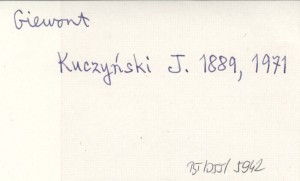 Giewont
Kuczyński J. 1889, 1971
5942